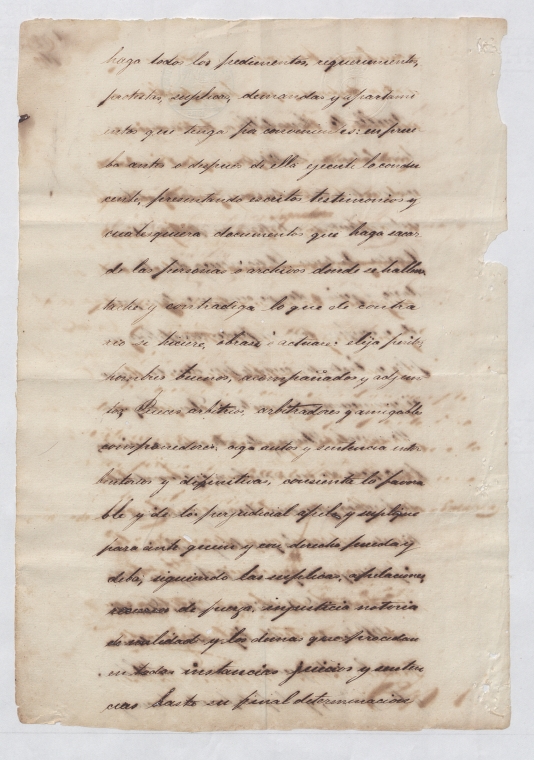 haga todos los pedimentos, requerimientos,
protestas, suplicas, demandas y apartami
entos que tenga por convenientes: en prue
ba antes o despues de ella ejecute lo condu
cente, presentando escritos testimonios y
cualesquiera documentos que haga sacar
de las personas ó archivos donde se hallen
tache y contradiga lo que de contra
rio se hiciere, obrare o actuare: elija peritos
hombres buenos, acompañados y adjun
tos, Jueces arbitros, arbitradores y amigables
componedores, oiga autos y sentencia inter
locutorios y difinitivas, consienta lo favora
ble y de lo perjudicial apele, y suplique
para ante quien y con derecho pueda y
deba, siguiendo las suplicas, apelaciones
recursos de fuerza, injusticia notoria
de nulidad y los demas que procedan
en todas instancias juicios y senten
cias hasta su final determinacion